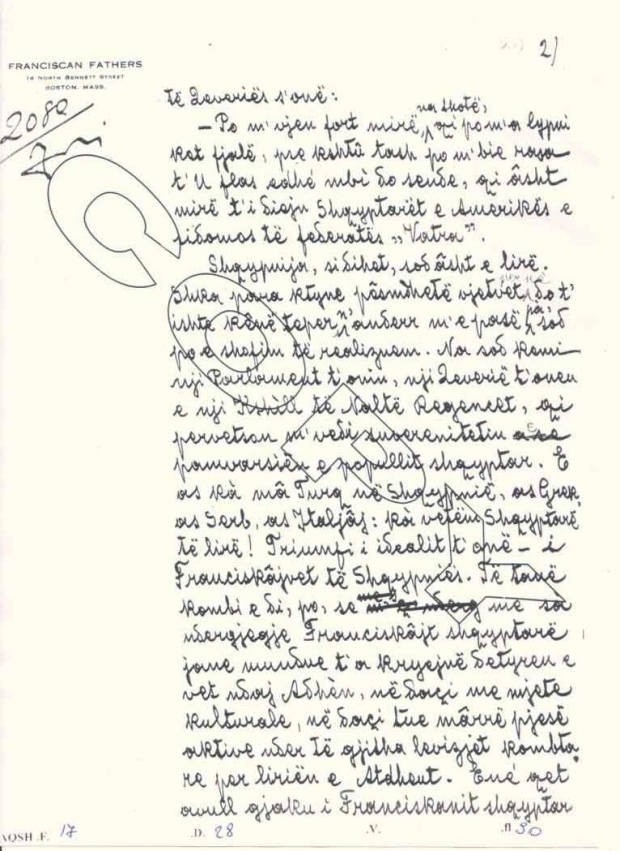 2)
FRANCISCAN FATHERS
18 NORTH BENNETT STREET
BOSTON, MASS.
2080
të Qeveriës s'onë:
na thotë,
— Po m'vjen fort mirë, qi po m'a lypni
kët fjalë, pse kshtû tash po m'bie rasa
t'U flas edhé mbi do sende, qi âsht
mirë t'i dinjn Shqyptarët e Amerikës e
sidomos të federatës „Vatra".
Shqypnija, si dihet, sod âsht e lirë.
Shka para ktyne pêsmdhetë vjetvet, do t'
ishte kênë teper anderr m'e pasë, sod
po e shofim të realizuem. Na sod kemi
nji Parlament t'onin, nji Qeverië t'onen
e nji Kshîll të Naltë Regencet, qi
pervetson m'vedi suverenitetin e
pamvarsiën e popullit shqyptar. E
as kà mâ Turq në Shqypnië, as Grek,
as Serb, as Italjâj: kà vetëm Shqyptarë
të lirë! Triumfi i idealit t'onë — i
Franciskâjvet të Shqypniës. Të tanë
kombi e di, po, se me sa
ndergjegje Franciskâjt shqyptarë
jane mundue t'a kryejnë detyren e
vet ndaj Adhèn, në daçi me mjete
kulturale, në daçi tue mârrë pjesë
aktive nder të gjitha levizjet kombta
re per liriën e Atdheut. Ené qet
avull gjaku i Franciskanit shqyptar
AQSH.F. 17 .D. 28 .V. .fl 30
COPY